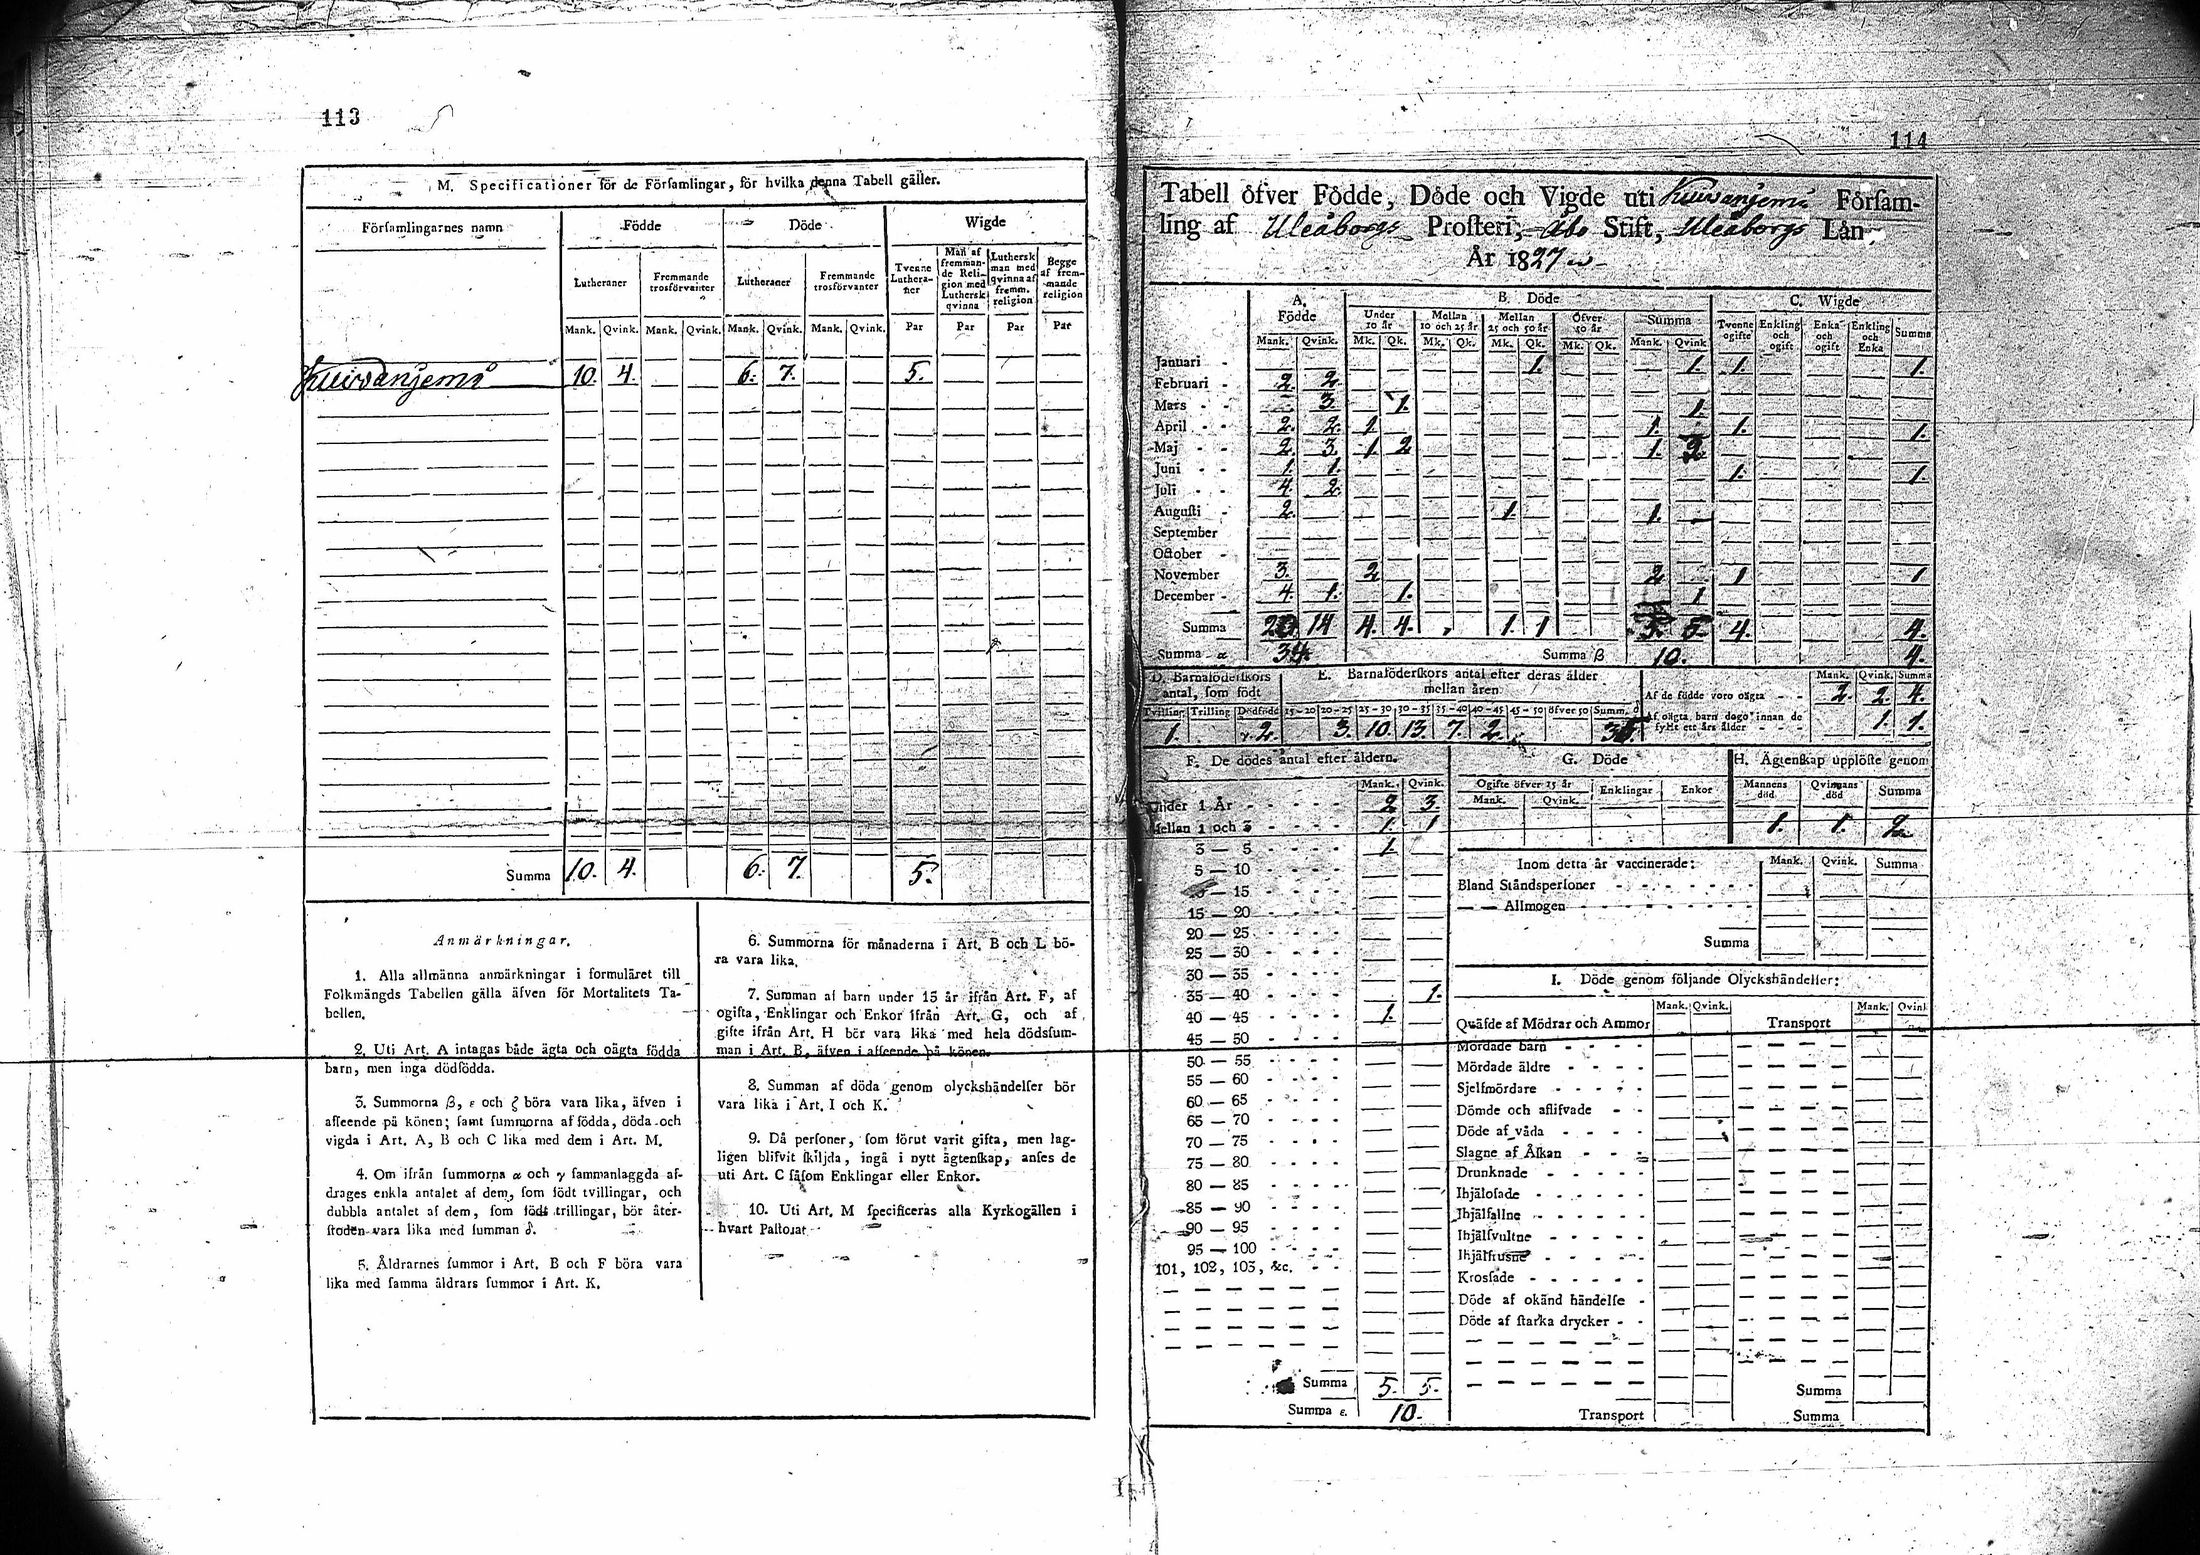 113
M. Specificationer för de Församlingar, för hvilka denna Tabell gäller.
Församlingarnes namn
Födde
Döde
Wigde
Lutheraner
Fremmande trosförvanter
Lutheraner
Fremmande trosförvanter
Tvenne Lutheraner
Man af fremmande Religion med Luthersk qvinna
Luthersk man med qvinna af fremm. religion
Begge af fremmande religion
Mank. Qvink. Mank. Qvink. Mank. Qvink. Mank. Qvink. Par Par Par Par
Kuivanjemi 10. 4. 6. 7. 5.
Summa 10. 4. 6. 7. 5.
Anmärkningar.
1. Alla allmänna anmärkningar i formuläret till
Folkmängds Tabellen gälla äfven för Mortalitets Ta-
bellen.
2. Uti Art. A intagas både ägta och oägta födda
barn, men inga dödfödda.
3. Summorna β, ε och ζ böra vara lika, äfven i
afseende på könen; samt summorna af födda, döda och
vigda i Art. A, B och C lika med dem i Art. M.
4. Om ifrån summorna α och γ sammanlaggda af-
drages enkla antalet af dem, som födt tvillingar, och
dubbla antalet af dem, som födt trillingar, bör åter-
stoden vara lika med summan δ.
5. Åldrarnes summor i Art. B och F böra vara
lika med samma åldrars summor i Art. K.
6. Summorna för månaderna i Art. B och L bö-
ra vara lika.
7. Summan af barn under 15 år ifrån Art. F, af
ogifta, Enklingar och Enkor ifrån Art. G, och af
gifte ifrån Art. H bör vara lika med hela dödsum-
man i Art. B, äfven i afseende på könen.
8. Summan af döda genom olyckshändelser bör
vara lika i Art. I och K.
9. Då personer, som förut varit gifta, men lag-
ligen blifvit skiljda, ingå i nytt ägtenskap, anses de
uti Art. C såsom Enklingar eller Enkor.
10. Uti Art. M specificeras alla Kyrkogällen i
hvart Pastorat
114
Tabell öfver Födde, Döde och Vigde uti Kuivanjemi Församling af Uleåborgs Prosteri, Åbo Stift, Uleåborgs Län,
År 1827
A. Födde
B. Döde
C. Wigde
Under 10 år
Mellan 10 och 25 år
Mellan 25 och 50 år
Öfver 50 år
Summa
Tvenne ogifte
Enkling och ogift
Enka och ogift
Enkling och Enka
Summa
Mank. Qvink. Mk. Qk. Mk. Qk. Mk. Qk. Mk. Qk. Mank. Qvink
Januari 1. 1. 1. 1.
Februari 2. 2.
Mars 3. 1. 1.
April 2. 2. 1. 1. 1. 1.
Maj 2. 3. 1 2 1. 2.
Juni 1. 1. 1. 1.
Juli 4. 2.
Augusti 2. 1. 1.
September
October
November 3. 2 2. 1 1
December 4. 1. 1. 1
Summa 20 14 4. 4. 1. 1 5. 5. 4. 4.
Summa α 34. Summa β 10. 4.
D. Barnaföderskors antal, som födt
Tvilling Trilling Dödfödd
1. γ. 2.
E. Barnaföderskors antal efter deras ålder mellan åren
15-20 20-25 25-30 30-35 35-40 40-45 45-50 öfver 50 Summ. δ
3. 10. 13. 7. 2. 35.
Mank. Qvink. Summa
Af de födde voro oägta 2. 2. 4.
Af oägta barn dogo innan de fyllt ett års ålder 1. 1.
F. De dödes antal efter åldern.
Mank. Qvink.
Under 1 År 2 3.
Mellan 1 och 3 1. 1
3 — 5 1.
5 — 10
15
15 — 20
20 — 25
25 — 30
30 — 35
35 — 40 1.
40 — 45 1.
45 — 50
50 — 55
55 — 60
60 — 65
65 — 70
70 — 75
75 — 80
80 — 85
85 — 90
90 — 95
95 — 100
101, 102, 103, &c.
Summa 5. 5.
Summa ε. 10.
G. Döde
Ogifte öfver 25 år
Mank. Qvink.
Enklingar Enkor
H. Ägtenskap upplöste genom
Mannens död Qvinnans död Summa
1. 1. 2
Inom detta år vaccinerade: Mank. Qvink. Summa
Bland Ståndspersoner
— — Allmogen
Summa
I. Döde genom följande Olyckshändelser:
Mank. Qvink. Mank. Qvink
Quäfde af Mödrar och Ammor Transport
Mördade barn
Mördade äldre
Sjelfmördare
Dömde och aflifvade
Döde af våda
Slagne af Åskan
Drunknade
Ihjälosade
Ihjälfallne
Ihjälsvultne
Ihjälfrusne
Krossade
Döde af okänd händelse
Döde af starka drycker
Summa
Transport Summa